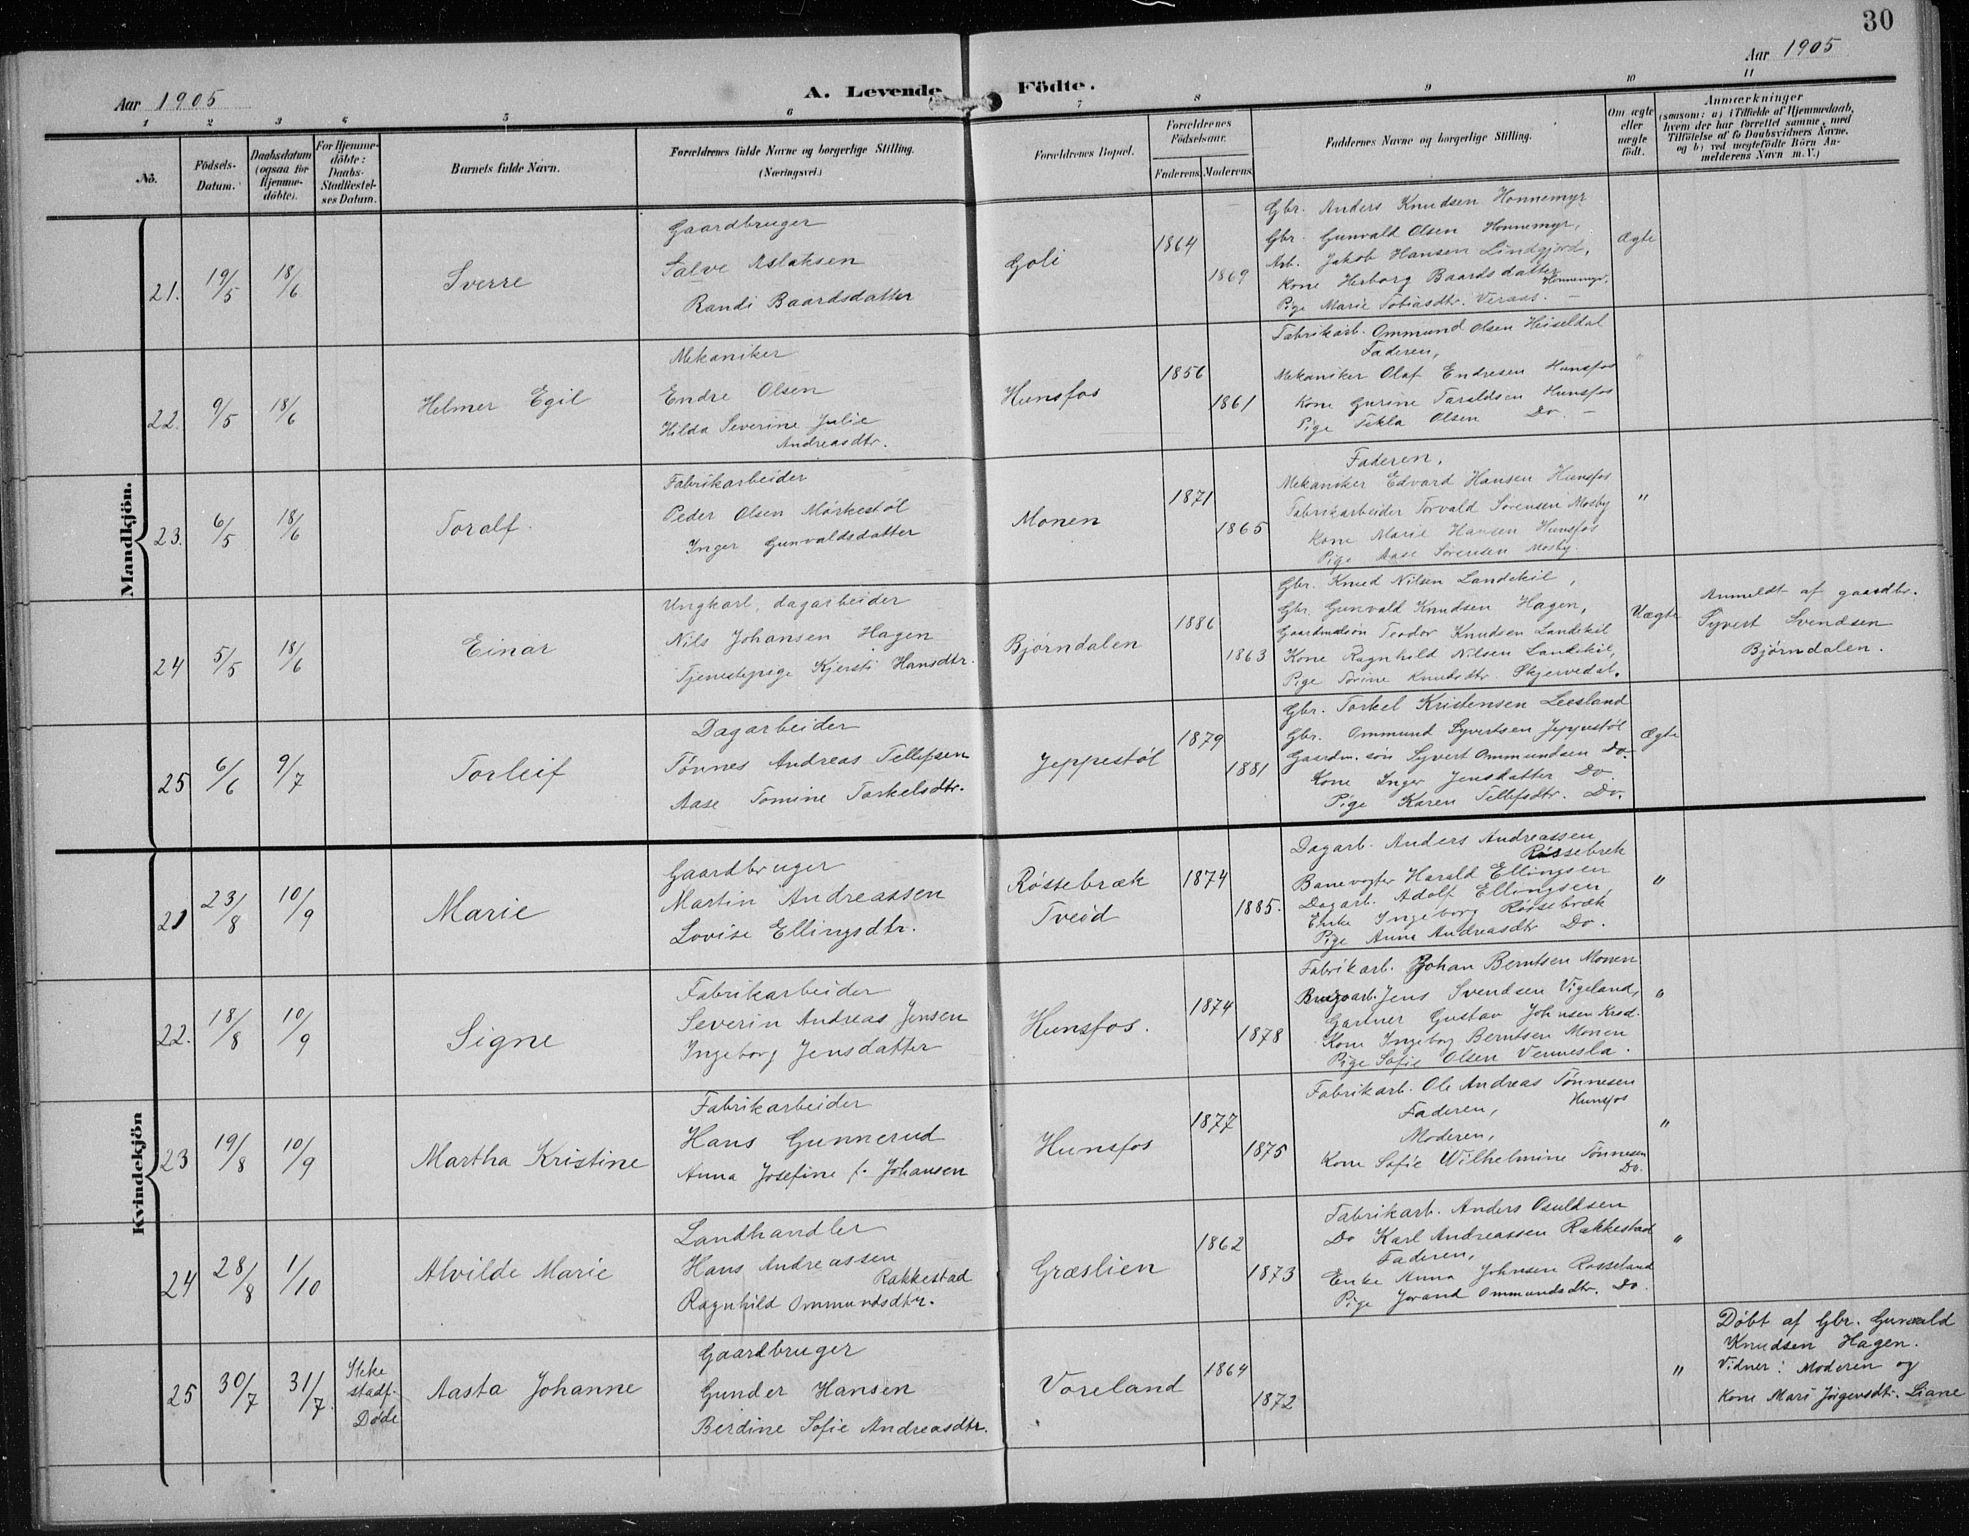 30
Aar 1905
A. Levende Födte.
Aar 1905
1 2 3 4 5 6 7 8 9 10 11
No.
Födsels-Datum.
Daabsdatum (ogsaa for Hjemmedöbte).
For Hjemmedöbte: Daabs-Stadfæstelses Datum.
Barnets fulde Navn.
Forældrenes fulde Navne og borgerlige Stilling. (Næringsvei.)
Forældrenes Bopæl.
Forældrenes Födselsaar.
Faderens. Moderens.
Faddernes Navne og borgerlige Stilling.
Om ægte eller uægte födt.
Anmærkninger
(saasom: a) i Tilfælde af Hjemmedaab, hvem der har forrettet samme, med Tilföielse af to Daabsvidners Navne. og b) ved uægtefödte Börn Anmelderens Navn m. V.)
Mandkjön.
21. 19/5 18/6 Sverre
Gaardbruger
Salve Aslaksen
Randi Baardsdatter
Goli 1864 1869
Gbr. Anders Knudsen Honnemyr
Gbr. Gunvald Olsen Honnemyr,
Arb. Jakob Hansen Lindgjord,
Kone Herborg Baardsdatter Honnemyr,
Pige Marie Tobiasdtr. Veraas. –
Ægte
22. 9/5 18/6 Helmer Egil
Mekaniker
Endre Olsen
Hilda Severine Julie
Andreasdtr.
Hunsfos 1856 1861
Fabrikarb. Ommund Olsen Heiseldal
Faderen,
Mekaniker Olaf Endresen Hunsfos
Kone Gurine Taraldsen Hunsfos
Pige Tekla Olsen Do. –
"
23. 6/5 18/6 Toralf
Fabrikarbeider
Peder Olsen Mørkestøl
Inger Gunvaldsdatter
Monen 1871 1865
Faderen,
Mekaniker Edvard Hansen Hunsfos
Fabrikarbeider Torvald Sørensen Mosby
Kone Marie Hansen Hunsfos
Pige Aase Sørensen Mosby
"
24 5/5 18/6 Einar
Ungkarl, dagarbeider
Nils Johansen Hagen
Tjenestepige Kjersti Hansdtr.
Bjørndalen 1886 1863
Gbr. Knud Nilsen Landekil,
Gbr. Gunvald Knudsen Hagen,
Gaardmdsøn Teodor Knudsen Landekil
Kone Ragnhild Nilsen Landekil,
Pige Torine Knudsdtr. Skjervedal.
Uægte
Anmeldt af gaardbr.
Syvert Svendsen
Bjørndalen.
25 6/6 9/7 Torleif
Dagarbeider
Tønnes Andreas Tellefsen
Aase Tomine Torkelsdtr.
Jeppestøl 1879 1881
Gbr. Torkel Kristensen Leesland
Gbr. Ommund Syvertsen Jeppestøl
Gaardm. søn Syvert Ommundsen Do.
Kone Inger Jensdatter Do.
Pige Karen Tellefsdtr. Do.
Ægte
Kvindekjön
21 23/8 10/9 Marie
Gaardbruger
Martin Andreassen
Lovise Ellingsdtr.
Røssebræk
Tveid
1874 1885.
Dagarb. Anders Andreassen
Røssebrek
Banevogter Harald Ellingsen
Dagarb. Adolf Ellingsen,
Enke Ingeborg Røssebræk
Pige Anna Andreasdtr Do.
"
22. 18/8 10/9 Signe
Fabrikarbeider
Severin Andreas Jensen
Ingeborg Jensdatter
Hunsfos. 1874 1878
Fabrikarb. Johan Berntsen Monen
Brugsarb. Jens Svendsen Vigeland,
Garver Gustav Johnsen Krsd.
Kone Ingeborg Berntsen Monen
Pige Sofie Olsen Vennesla.
"
23 19/8 10/9 Martha Kristine
Fabrikarbeider
Hans Gunnerud
Anna Josefine f. Johansen
Hunsfos 1877 1875
Fabrikarb. Ole Andreas Tønnesen
Hunsfos
Faderen,
Moderen,
Kone Sofie Wilhelmine Tønnesen
Do.
"
24 28/8 1/10 Alvilde Marie
Landhandler
Hans Andreassen
Rakkestad
Ragnhild Ommundsdtr.
Græslien 1862 1873
Fabrikarb. Anders Osuldsen
Do Karl Andreassen Rakkestad
Faderen,
Enke Anna Johnsen Rosseland
Pige Jorand Ommundsdtr. Do.
"
25 30/7 31/7.
Ikke
stadf.
Døde
Aasta Johanne
Gaardbruger
Gunder Hansen
Berdine Sofie Andreasdtr.
Voreland 1864 1872
"
Døbt af Gbr. Gunvald
Knudsen Hagen.
Vidner: Moderen og
Kone Mari Jørgensdtr. Liane